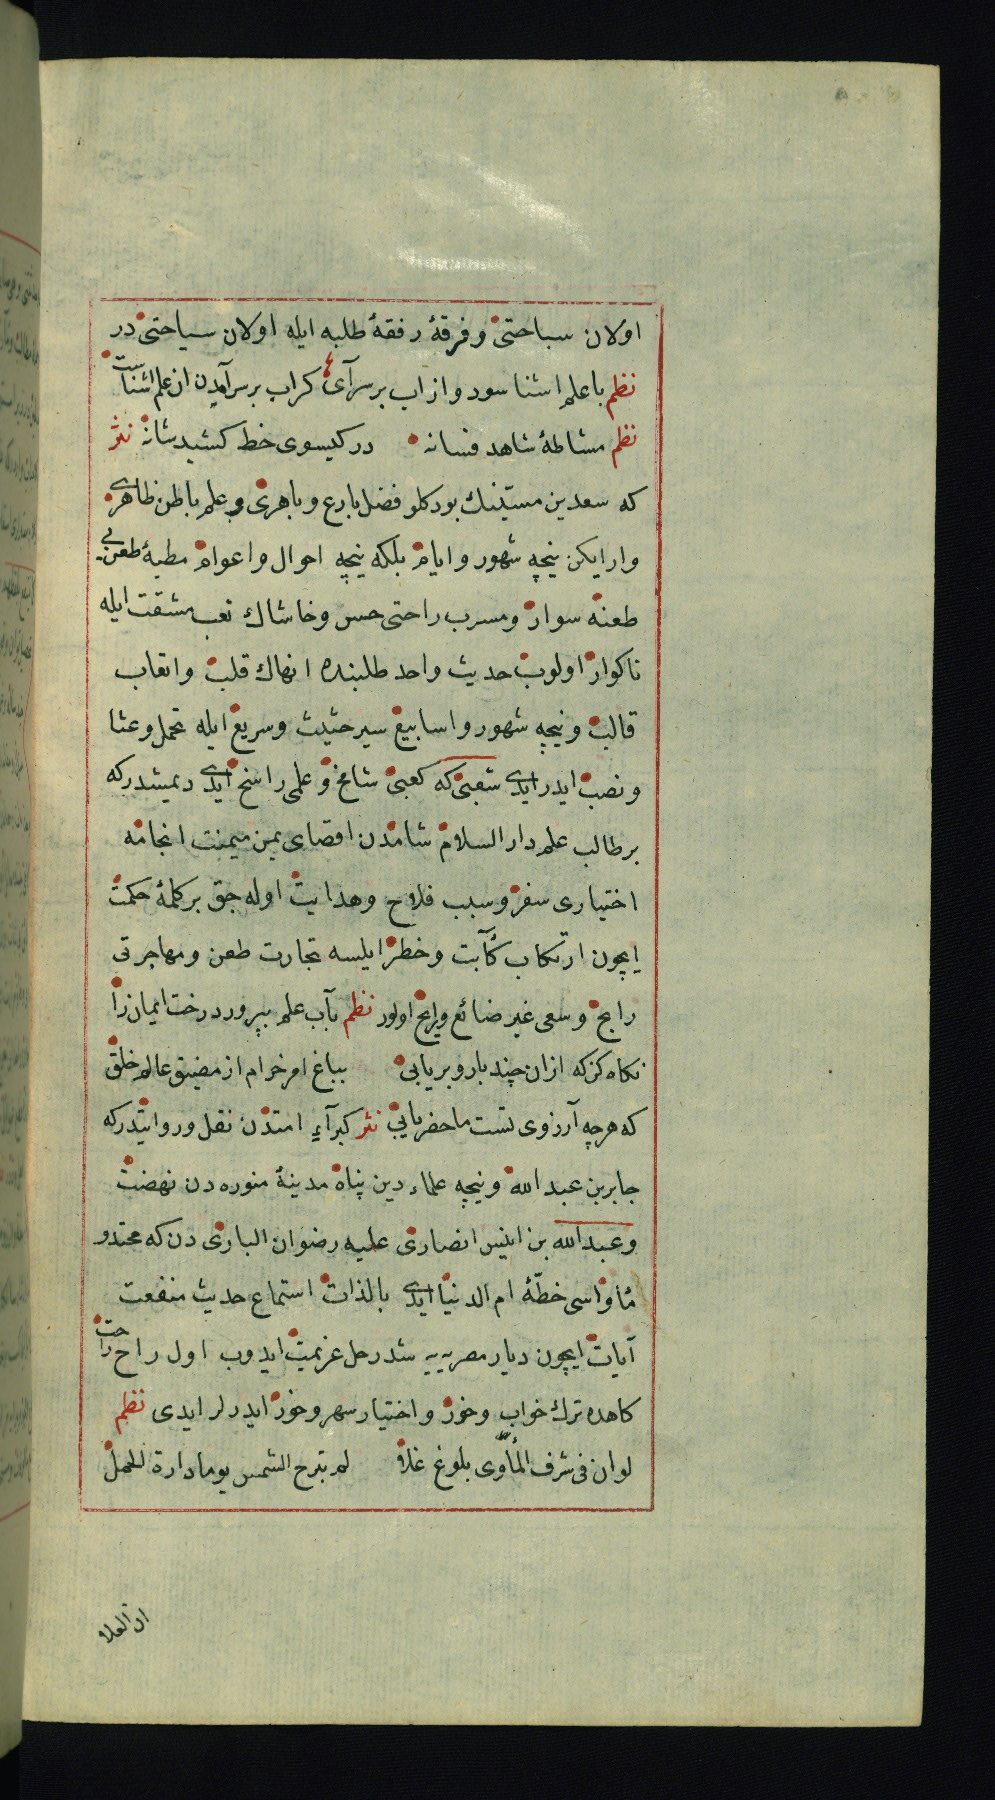 اولان سباحتیْ وفرقهٔ رفقهٔ طلبه ایله اولان سیاحتیْ در
نظم با علم اشنا سود و از اب بر سرآی کراب بر سرآمدن از علم اشناست
نظم مشاطهٔ شاهد فسانه در کیسوی خط کشید شانه نثر
که سعدین مستینك بود کلو فضل بارع و باهری و علم باطن ظاهری
وار ایکن نیچه شهور و ایام بلکه نیچه احوال و اعوام مطیهٔ طعن بی
طعنه سوار و مسرب راحتی حس و خاشاك تعب مشقت ایله
ناکوار اولوب حدیث واحد طلبنده انهاك قلب و اتعاب
قالب و نیچه شهور و اسابیع سیر حثیث و سریع ایله تحمل وعثا
و نصب ایدر ایدی شعبی که کعبی شامخ و علمی راسخ ایدی دیمشدر که
بر طالب علم دار السلام شامدن اقصای یمن میمنت انجامه
اختیاری سفر و سبب فلاح وهدایت اوله جق بر کلمهٔ حکمت
ایچون ارتکاب کآبت وخطر ایلسه تجارت طعن ومهاجرتی
رابح وسعی غیر ضائع ورایح اولور نظم بآب علم بپرور درخت ایمان را
نکاه کن که ازان چند بار وبر یابی بباغ امر خرام از مضیق عالم خلق
که هرچه آرزوی تست ماحضر یابی نثر کبرآء امتدن نقل و روایتدر که
جابر بن عبد الله ونیچه علماء دین پناه مدینهٔ منوره دن نهضت
وعبدالله بن انیس انصاری علیه رضوان الباری دن که محتدو
مأواسی خطّهٔ ام الدنیا ایدی بالذات استماع حدیث منفعت
آیات ایچون دیار مصریه یه شد رحل عزیمت ایدوب اول راح راحت
کاهده ترك خواب وخور و اختیار سهر وخور ایدرلر ایدی نظم
لو ان فی شرف المأوی بلوغ علا لم تبرح الشمس یوما دارة الحمل
ان العلا